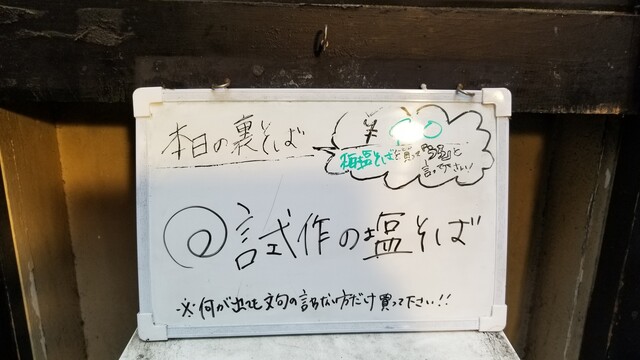 本日の裏そば
¥
塩そばを買って『裏』と
言って下さい!
@試作の塩そば
※何が出ても文句の言わない方だけ買って下さい!!